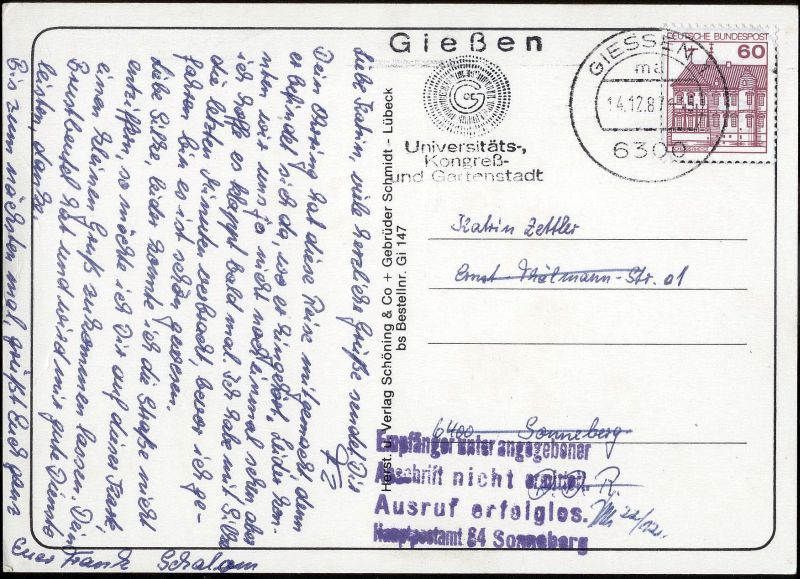 Gießen
Universitäts-,
Kongreß-
und Gartenstadt
GIESSEN
14.12.87
6300
DEUTSCHE BUNDESPOST
60
Herst. u. Verlag Schöning & Co + Gebrüder Schmidt - Lübeck
bs Bestellnr. Gi 147
Liebe Katrin, viele herzliche Grüße sendet Dir
Dein Ohrring hat diese Reise mitgemacht, denn
er befindet sich da, wo er hingehört. Leider kon-
nten wir uns ja nicht nocheinmal sehen aber
ich hoffe es klappt bald mal. Ich habe mit Silke
die letzten Minuten verbracht, bevor ich ge-
fahren bin es ist schön gewesen.
Liebe Silke, leider konnte ich die Straße nicht
entziffern, so möchte ich Dir auf dieser Karte
einen kleinen Gruß zukommen lassen. Dein
Brustbeutel hat und wird mir gute Dienste
leisten, danke.
Bis zum nächsten mal, grüßt Euch ganz
Euer Frank
Katrin Zettler
Ernst
-Str. 01
6400 Sonneberg
D.D.R.
Empfänger unter angegebener
Anschrift nicht ermittelt
Ausruf erfolglos.
Hauptpostamt 64 Sonneberg